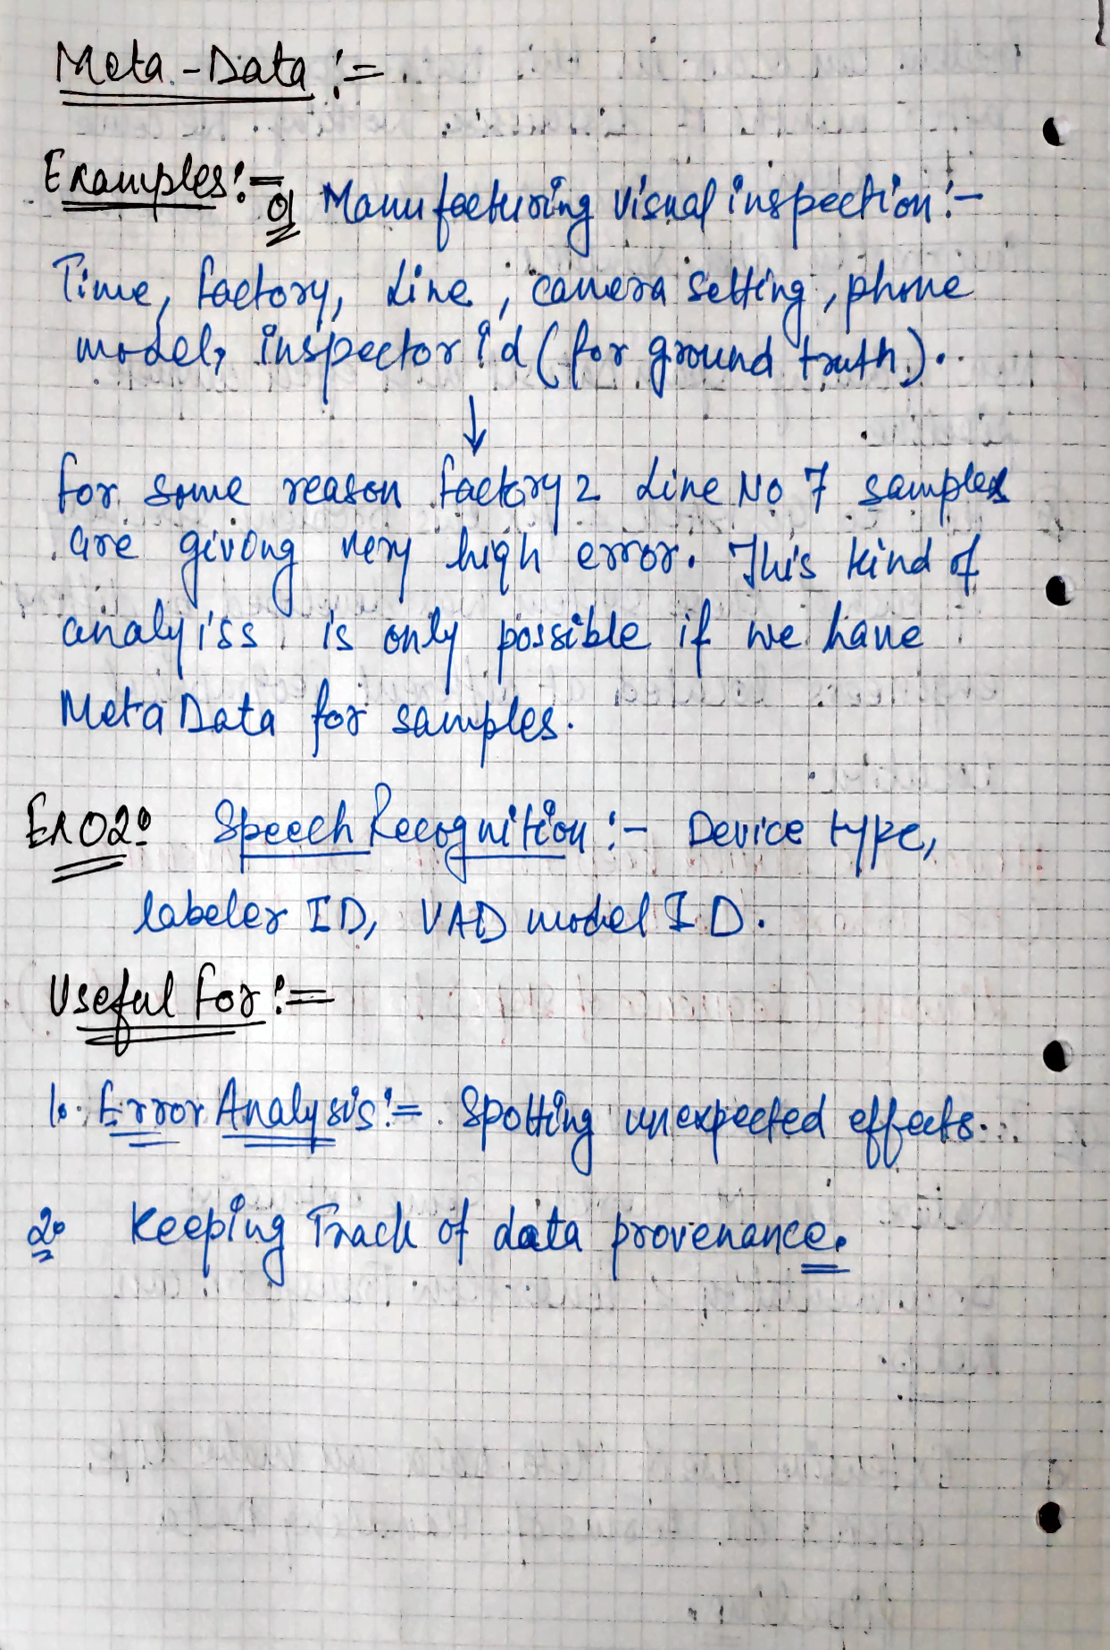 Meta-Data :=
Examples:= 01 Manufacturing visual inspection :-
Time, factory, Line, camera setting, phone
model, inspector id (for ground truth).
↓
for some reason factory 2 Line No 7 samples
are giving very high error. This kind of
analyiss is only possible if we have
Meta Data for samples.
Ex02: Speech Recognition :- Device type,
labeler ID, VAD model ID.
Useful for :=
1. Error Analysis := Spotting unexpected effects.
2. Keeping Track of data provenance.